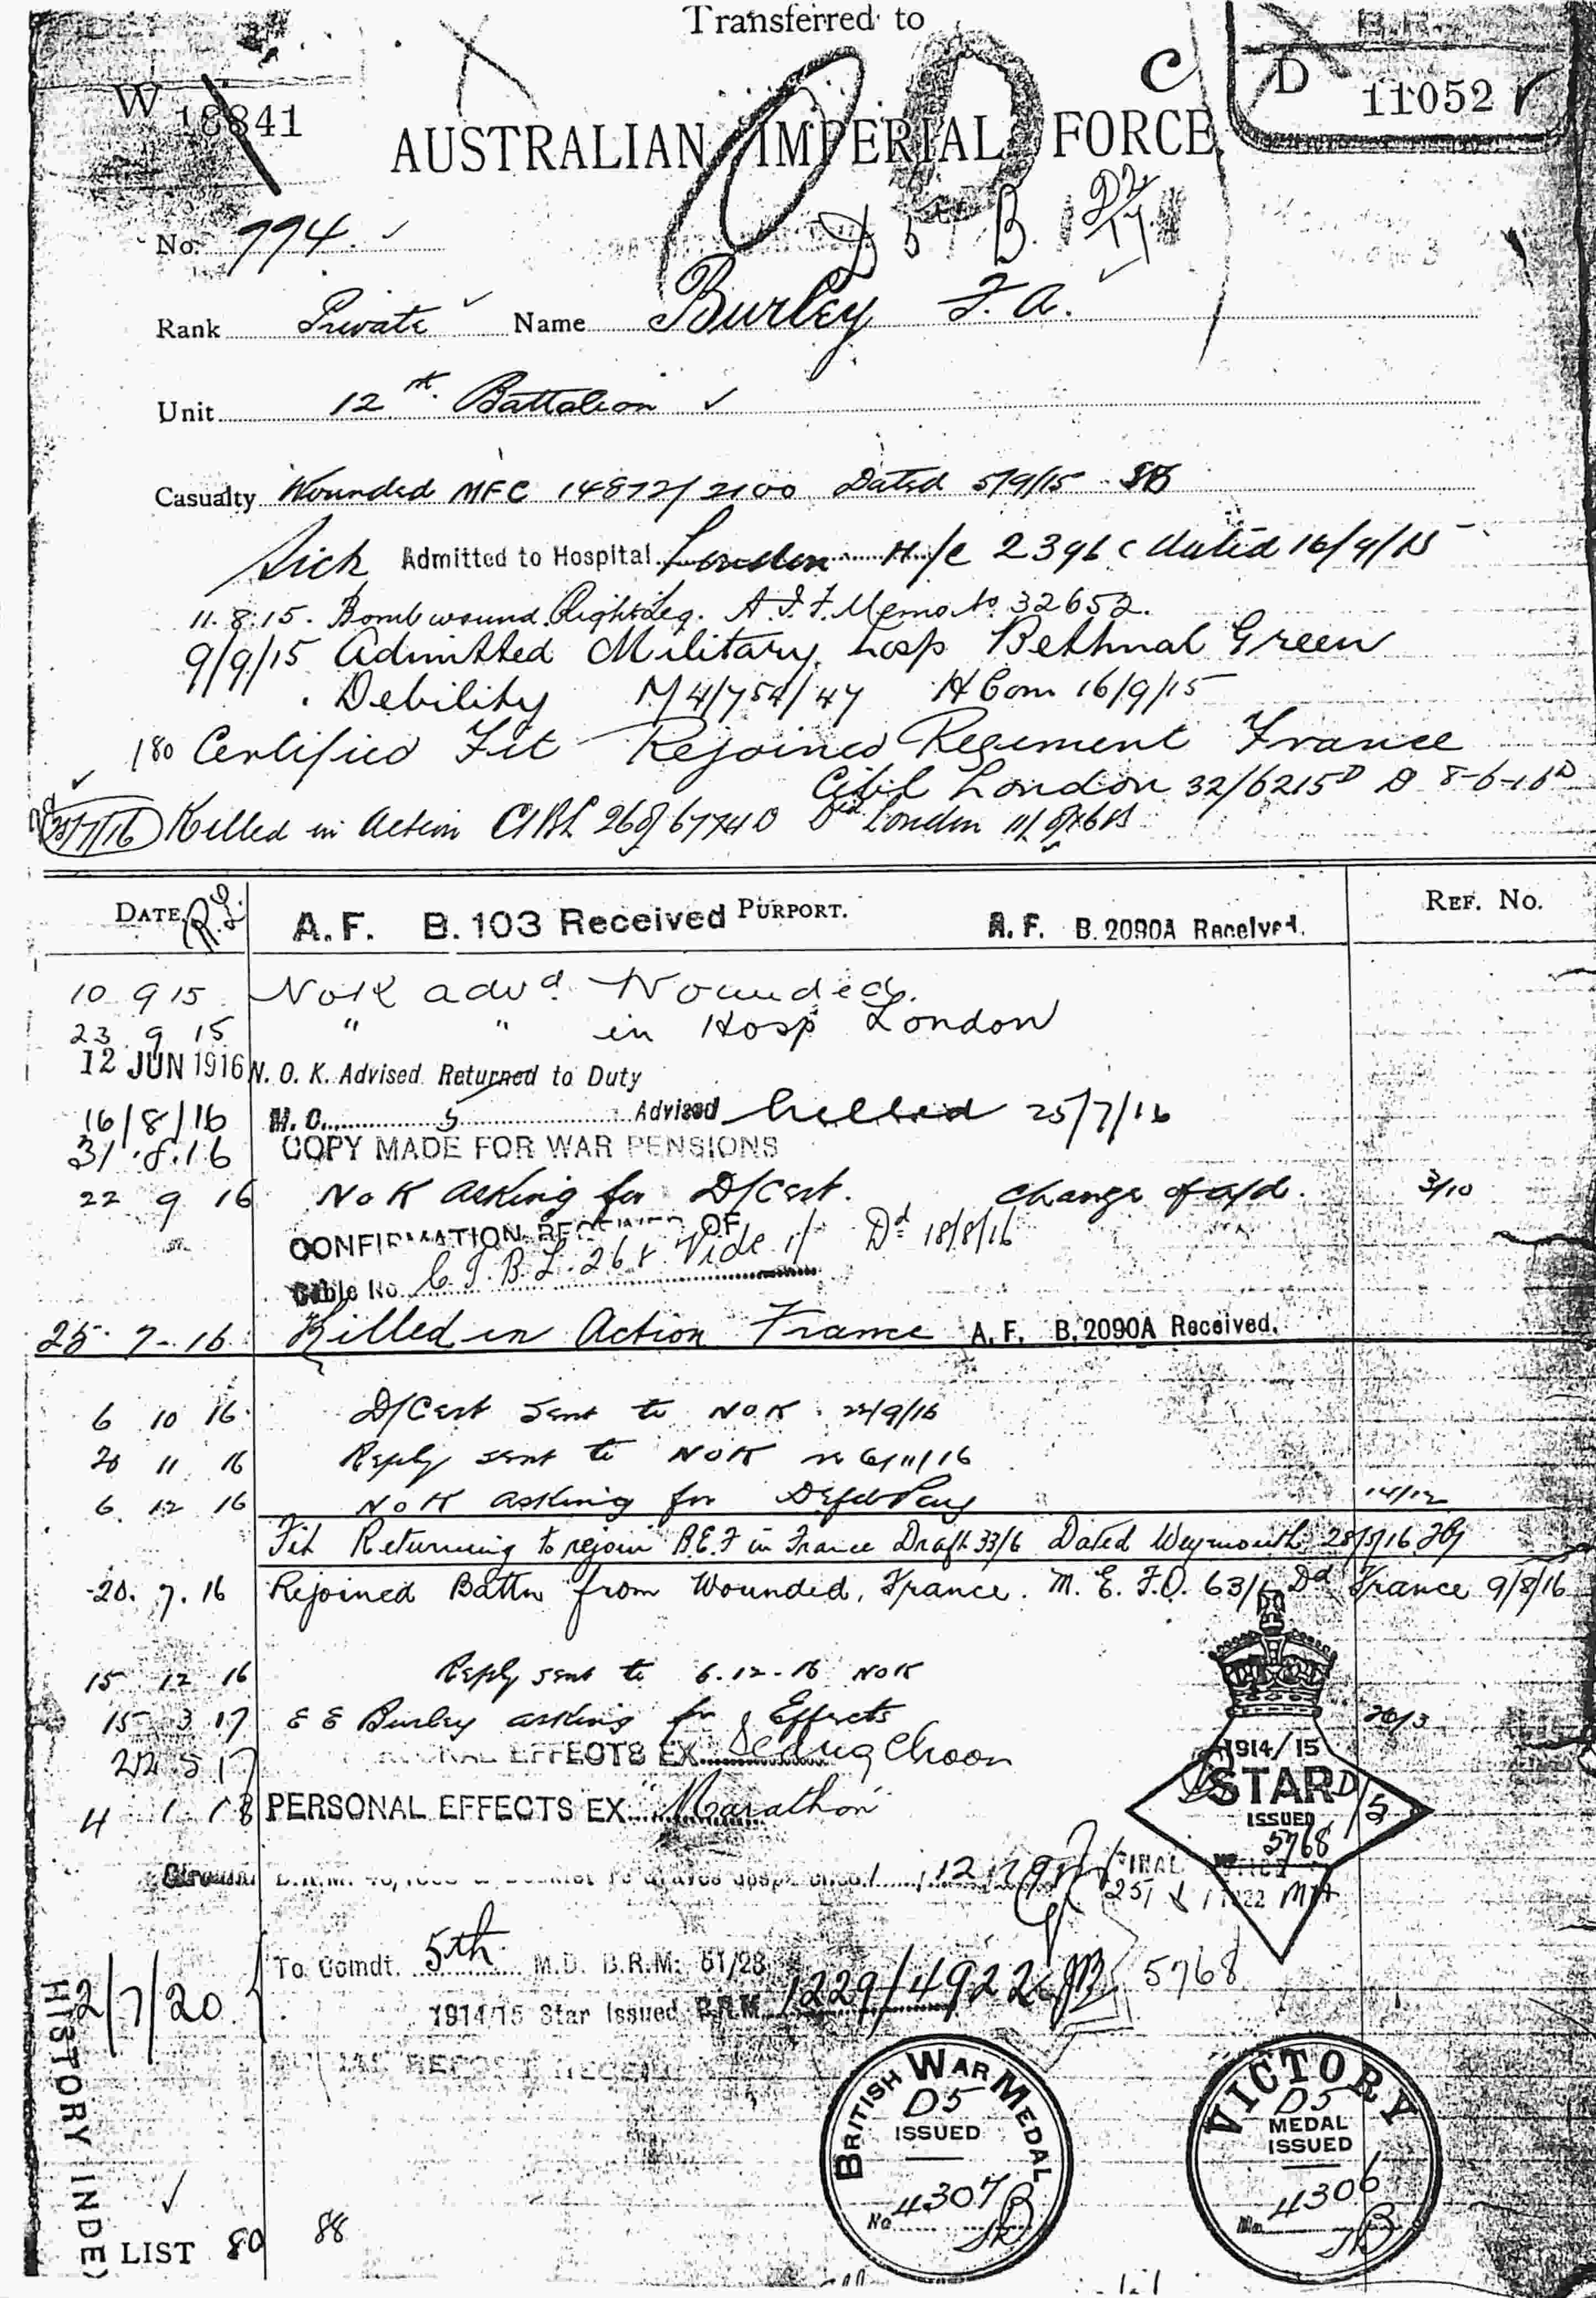 Transferred to
W 18841
C
D 11052
AUSTRALIAN IMPERIAL FORCE.
No. 774.
B.
Rank Private Name Burley F. A.
Unit 12th Battalion
Casualty Wounded MFC 14872/2100 Dated 5/9/15
Sick Admitted to Hospital London H/C 2396 c dated 16/9/15
11.8.15. Bomb wound Right Leg. A.I.F. Memo No 32652.
9/9/15 Admitted Military Hosp Bethnal Green
Debility M4/754/47 H Com 16/9/15
180 Certified Fit Rejoined Regiment France
Cibl London 32/6215D D 8-6-16
25/7/16 Killed in Action CIBL 268/6774D Dd London
DATE. PURPORT. REF. No.
A. F. B. 103 Received A. F. B. 2090A Received.
10 9 15 NoK advd. Wounded.
23 9 15 " " in Hosp London
12 JUN 1916 N. O. K. Advised Returned to Duty
16/8/16 M. C. 5 Advised killed 25/7/16
31.8.16 COPY MADE FOR WAR PENSIONS
22 9 16 NoK asking for D/Cert. change of a/d. 3/10
CONFIRMATION RECEIVED OF
Cable No C.I.B.L. 268 Vide Dd 18/8/16
25-7-16 Killed in Action France A. F. B. 2090A Received.
6 10 16 D/Cert sent to NOK 22/9/16
20 11 16 Reply sent to NOK 6/11/16
6 12 16 NoK asking for Defd Pay 14/12
Fit Returning to rejoin B.E.F in France Draft 33/6 Dated Weymouth 28/5/16
20.7.16 Rejoined Battn from Wounded, France. M. E. F.O. 63/ Dd France 9/8/16
15 12 16 Reply sent to 6.12.16 NOK
15 3 17 E E Burley asking for Effects 20/3
22 5 17 PERSONAL EFFECTS EX Seang Choon
4 1 18 PERSONAL EFFECTS EX "Marathon"
1914/15
STAR
ISSUED
5768
D/5
Circular
FINAL
To Comdt. 5th M.D. B.R.M. 61/28
5768
2/7/20
1914/15 Star Issued B.R.M. 1229/4922
BRITISH WAR MEDAL
D5
ISSUED
No 4307
VICTORY
D5
MEDAL
ISSUED
No 4306
HISTORY INDE
LIST 80 88